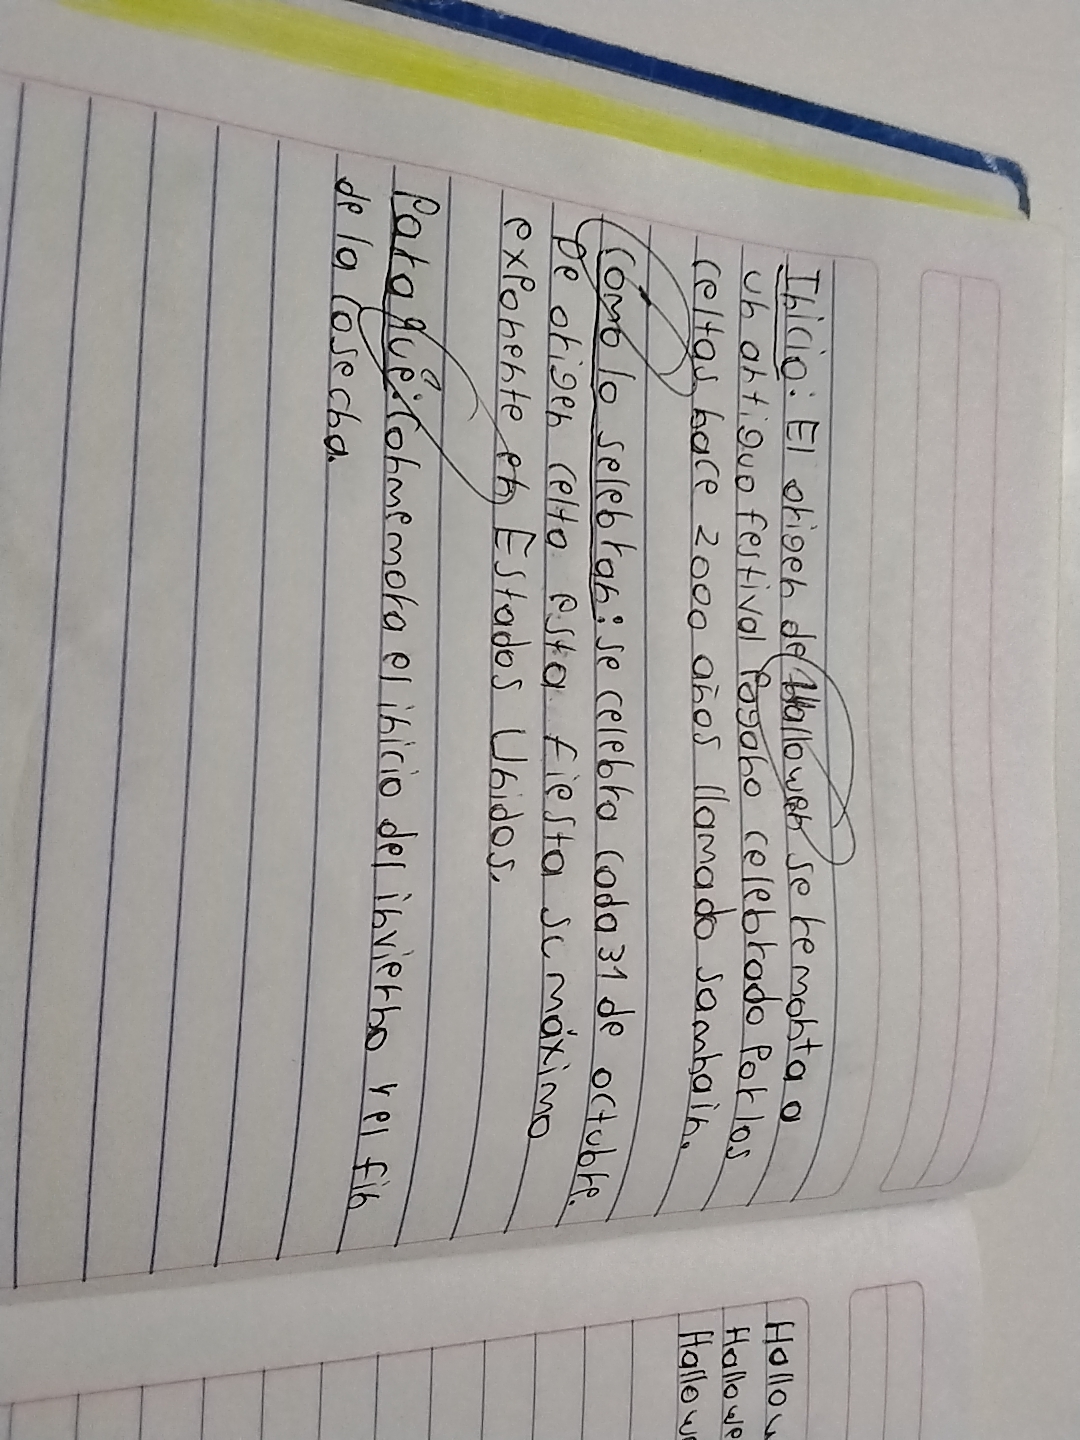 Inicio: El origen de Hallowen se remonta a
un antiguo festival Pagano celebrado Por los
celtas hace 2000 años llamado samhain.
Como lo selebran: se celebra cada 31 de octubre.
De origen celta esta fiesta su máximo
exponente en Estados Unidos.
Para qué: Conmemora el inicio del invierno y el fin
de la Cosecha.
Hallow
Hallowe
Hallowe